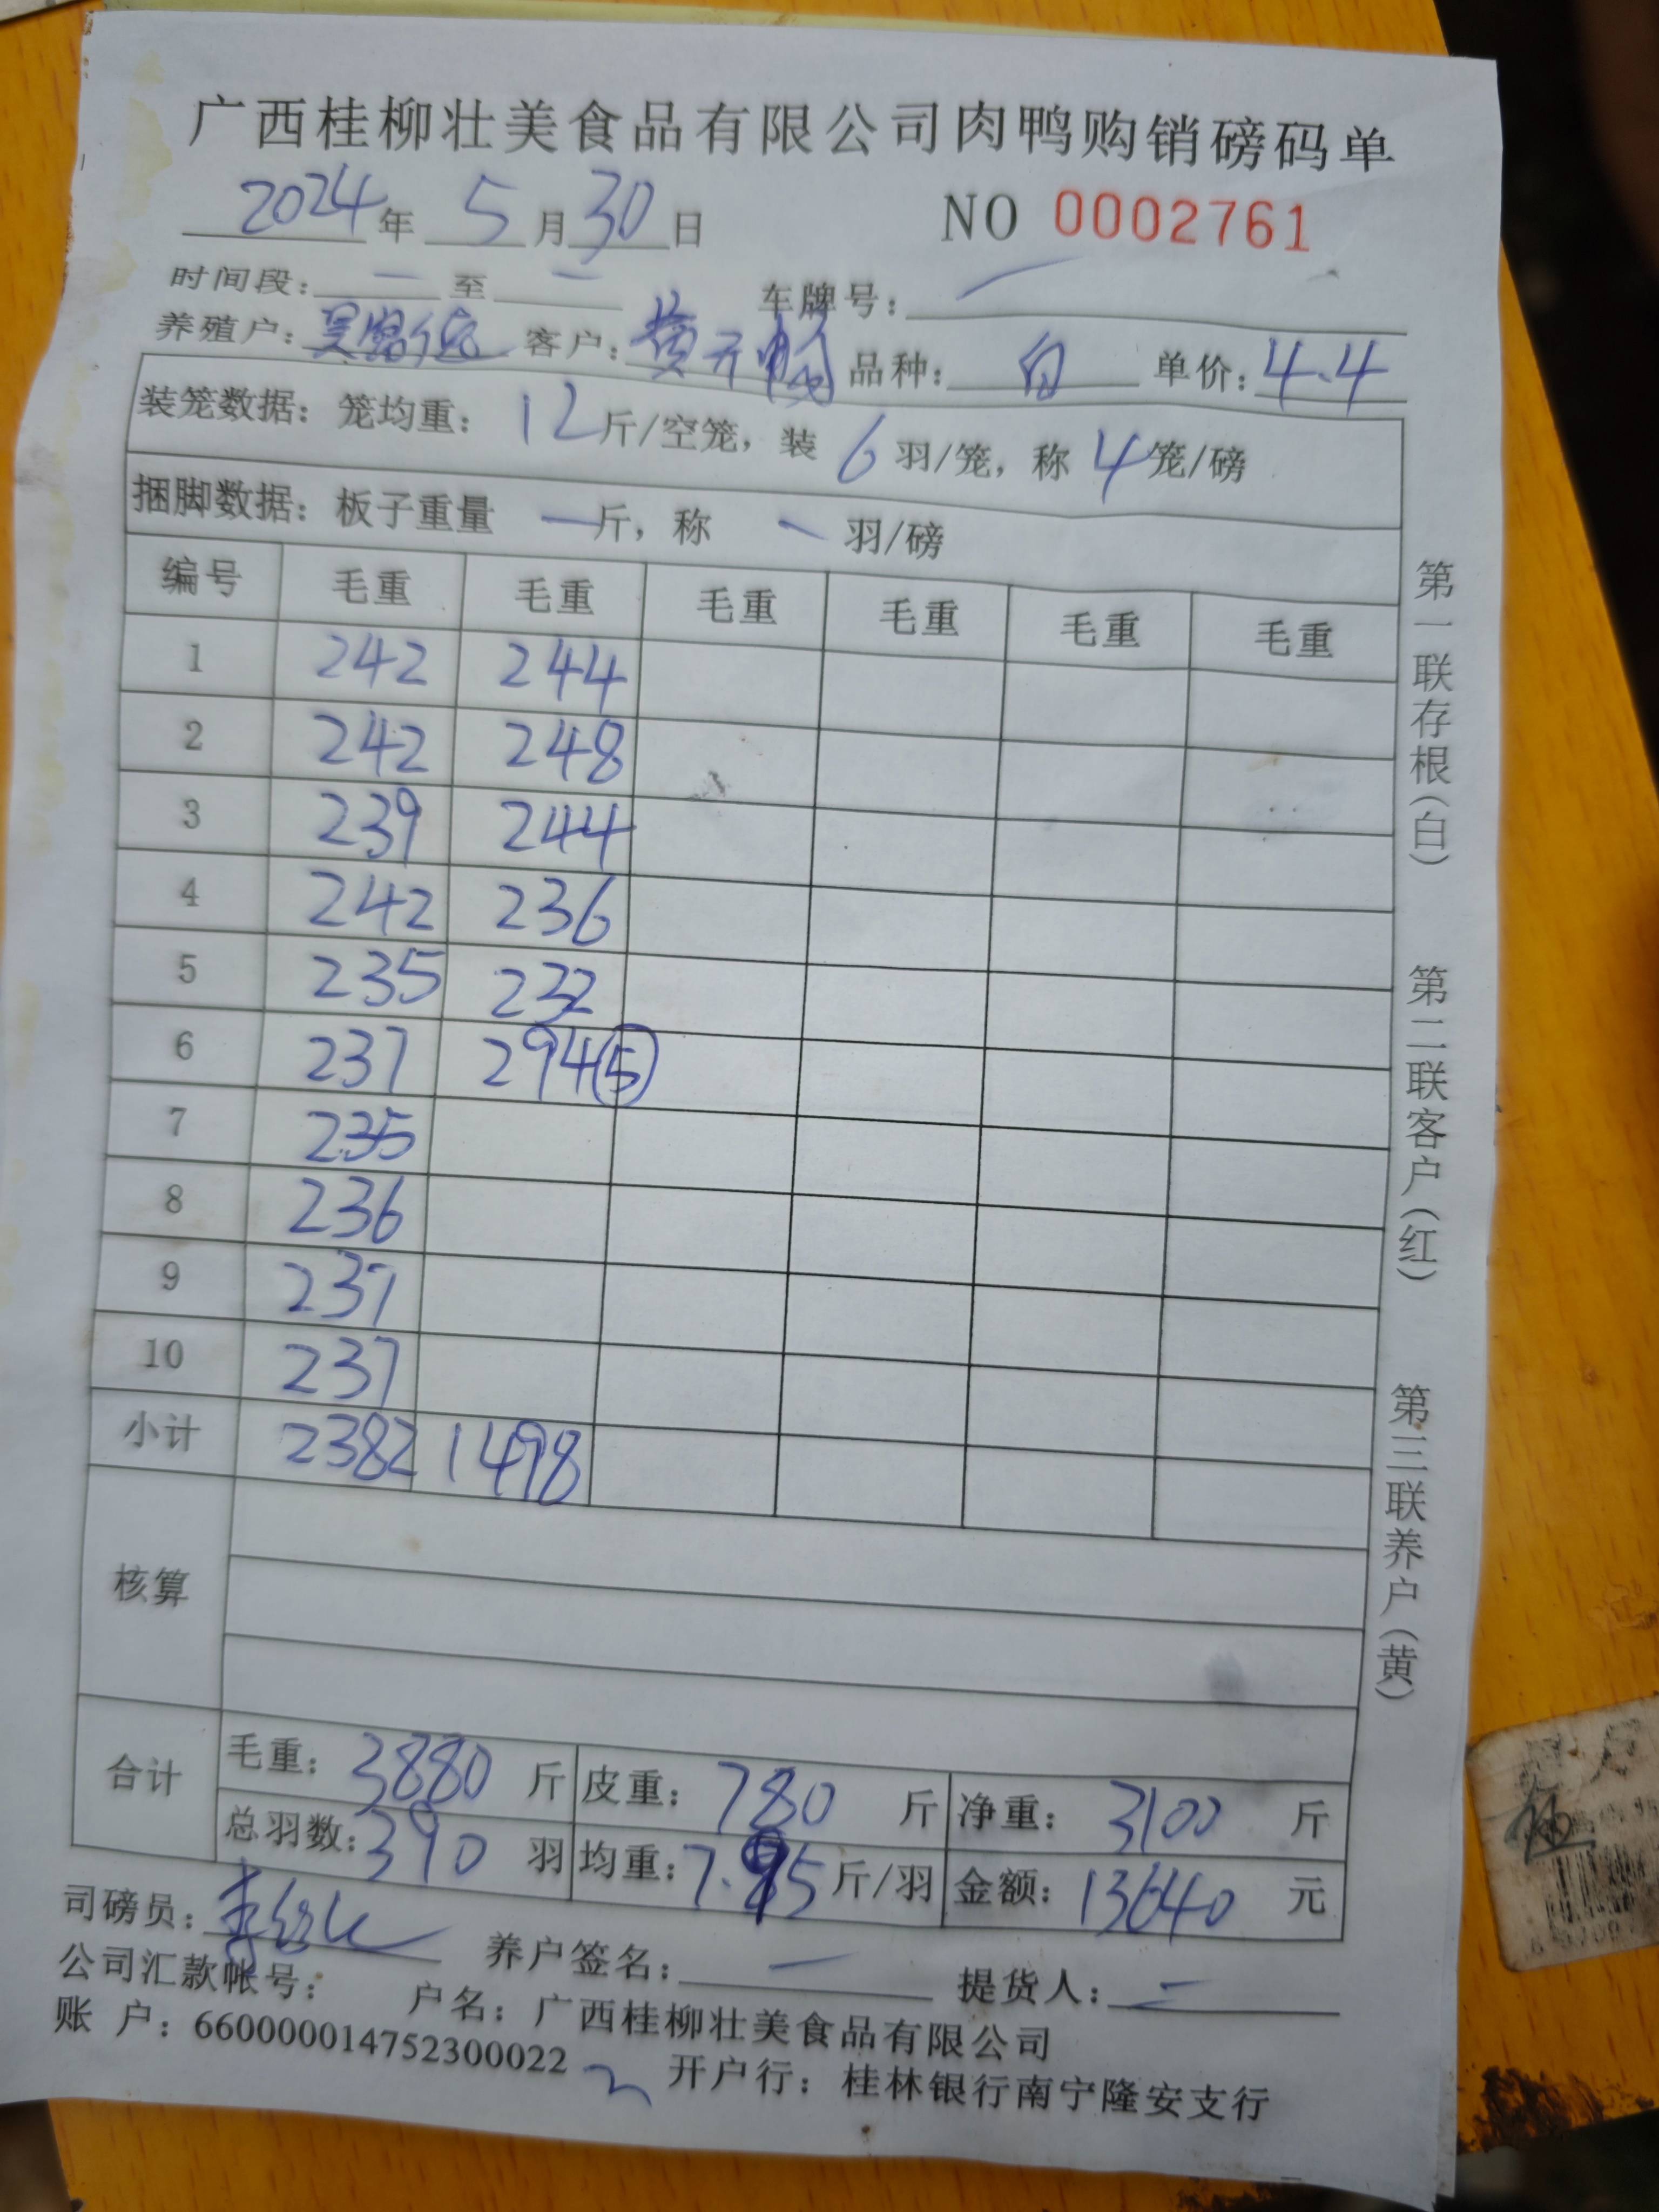 广西桂柳壮美食品有限公司肉鸭购销磅码单
2024年 5月30日 NO 0002761
时间段：一 至 一 车牌号：
养殖户： 客户：黄开 品种：白 单价：4.4
装笼数据：笼均重：12斤/空笼，装 6 羽/笼，称 4 笼/磅
捆脚数据：板子重量 一斤，称 一 羽/磅
编号 毛重 毛重 毛重 毛重 毛重 毛重
1 242 244
2 242 248
3 239 244
4 242 236
5 235 232
6 237 294⑤
7 235
8 236
9 237
10 237
小计 2382 1498
核算
合计 毛重：3880 斤 皮重：780 斤 净重：3100 斤
总羽数：390 羽 均重：7.95斤/羽 金额：13640 元
司磅员：李 养户签名：一 提货人：一
公司汇款帐号： 户名：广西桂柳壮美食品有限公司
账 户：660000014752300022 开户行：桂林银行南宁隆安支行
第一联存根（白） 第二联客户（红） 第三联养户（黄）